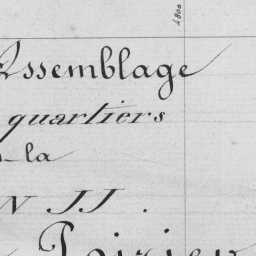 1800
Assemblage
quartiers
la
N II .
Poirier